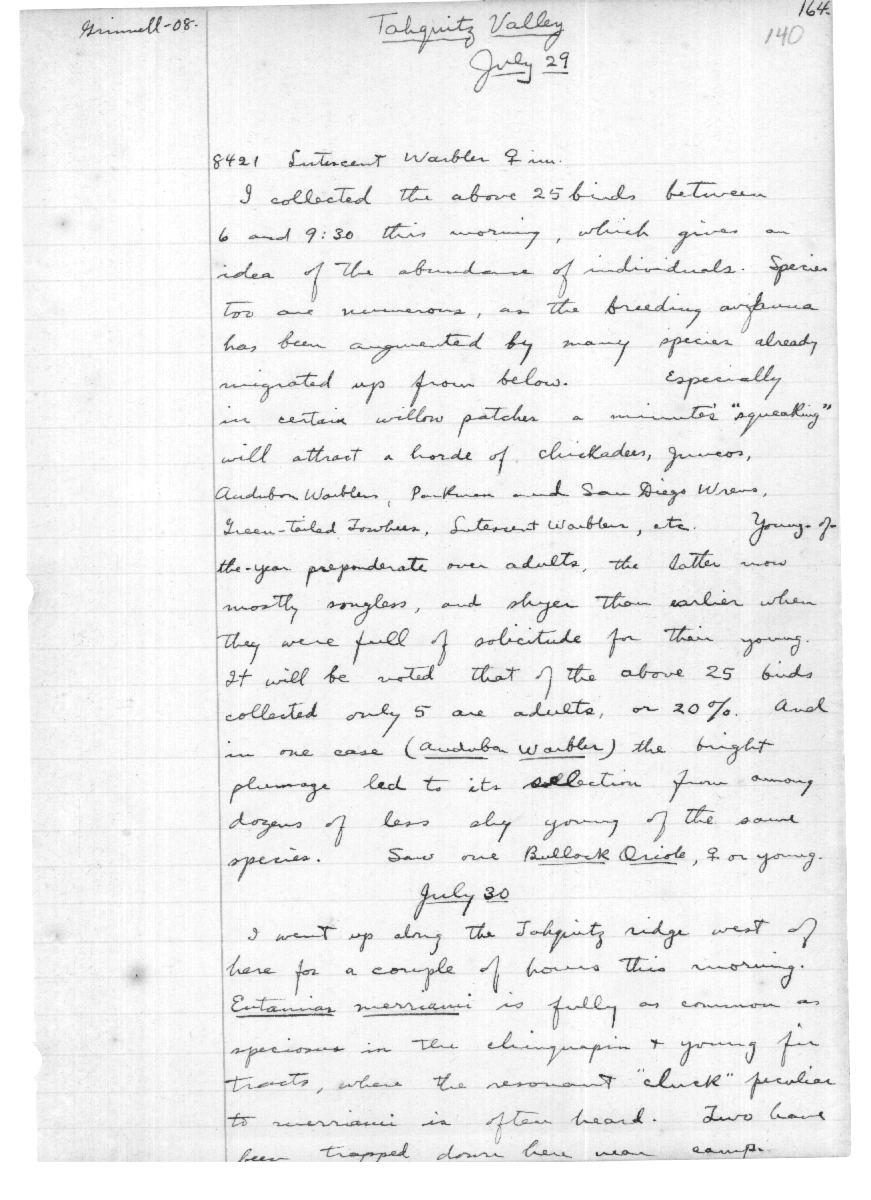 Grinnell-08.
164.
140
Tahquitz Valley
July 29
8421 Lutescent Warbler ♀ im.
I collected the above 25 birds between
6 and 9:30 this morning, which gives an
idea of the abundance of individuals. Species
too are numerous, as the breeding avifauna
has been augmented by many species already
migrated up from below. Especially
in certain willow patches a minute's "squeaking"
will attract a horde of chickadees, juncos,
Audubon Warblers, Parkman and San Diego Wrens,
Green-tailed Towhees, Lutescent Warblers, etc. Young-of-
the-year preponderate over adults, the latter now
mostly songless, and shyer than earlier when
they were full of solicitude for their young.
It will be noted that of the above 25 birds
collected only 5 are adults, or 20%. And
in one case (Audubon Warbler) the bright
plumage led to its selection from among
dozens of less shy young of the same
species. Saw one Bullock Oriole, ♀ or young.
July 30
I went up along the Tahquitz ridge west of
here for a couple of hours this morning.
Eutamias merriami is fully as common as
speciosus in the chinquapin + young fir
tracts, where the resonant "cluck" peculiar
to merriami is often heard. Two have
been trapped down here near camp.